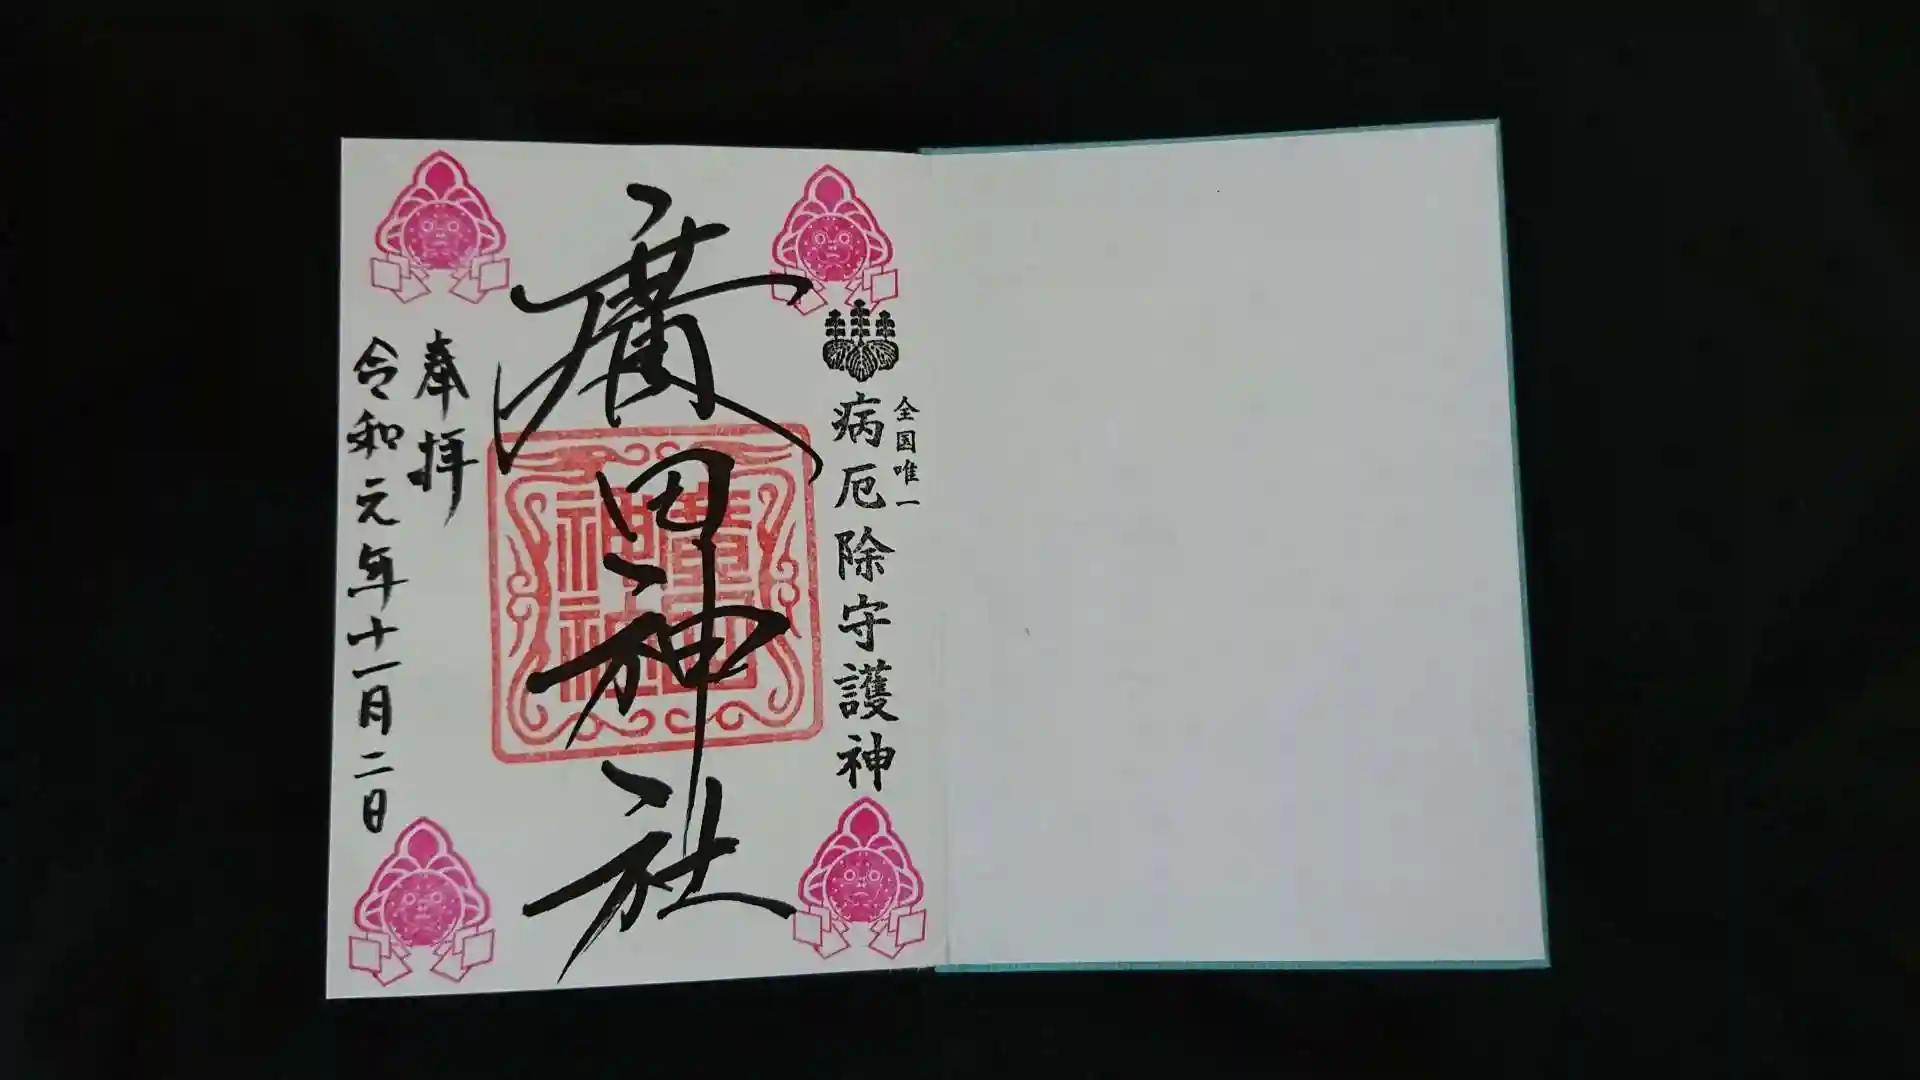 全国唯一
病厄除守護神
廣田神社
廣田神社
奉拝
令和元年十一月二日